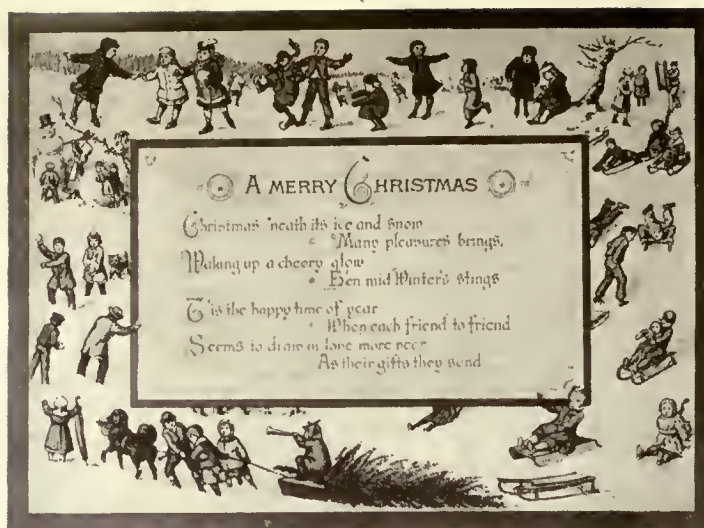 A MERRY CHRISTMAS
Christmas 'neath its ice and snow
Many pleasures brings,
Waking up a cheery glow
E'en mid Winter's stings
T'is the happy time of year
When each friend to friend
Seems to draw in love more near
As their gifts they send